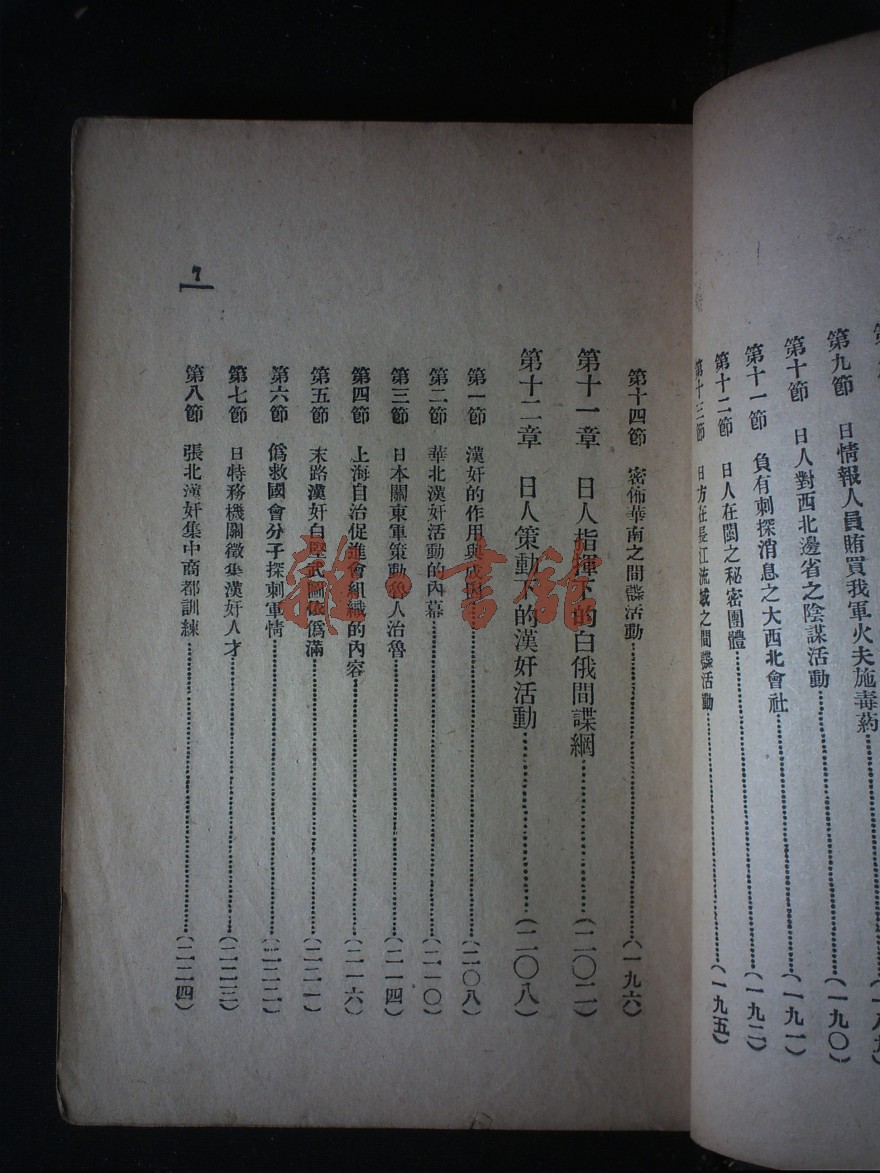 第九節　日情報人員賄買我軍火夫施毒葯……(一八九)
第十節　日人對西北邊省之陰謀活動……(一九〇)
第十一節　負有刺探消息之大西北會社……(一九一)
第十二節　日人在閩之秘密團體……(一九二)
第十三節　日方在長江流域之間諜活動……(一九五)
第十四節　密佈華南之間諜活動……(一九六)
第十一章　日人指揮下的白俄間諜網……(二〇二)
第十二章　日人策動下的漢奸活動……(二〇八)
第一節　漢奸的作用與成因……(二〇八)
第二節　華北漢奸活動的內幕……(二一〇)
第三節　日本關東軍策動魯人治魯……(二一四)
第四節　上海自治促進會組織的內容……(二一六)
第五節　末路漢奸白堅武圖依僞滿……(二二一)
第六節　僞救國會分子探刺軍情……(二二二)
第七節　日特務機關徵集漢奸人才……(二二三)
第八節　張北漢奸集中商都訓練……(二二四)
7
雜·書舘